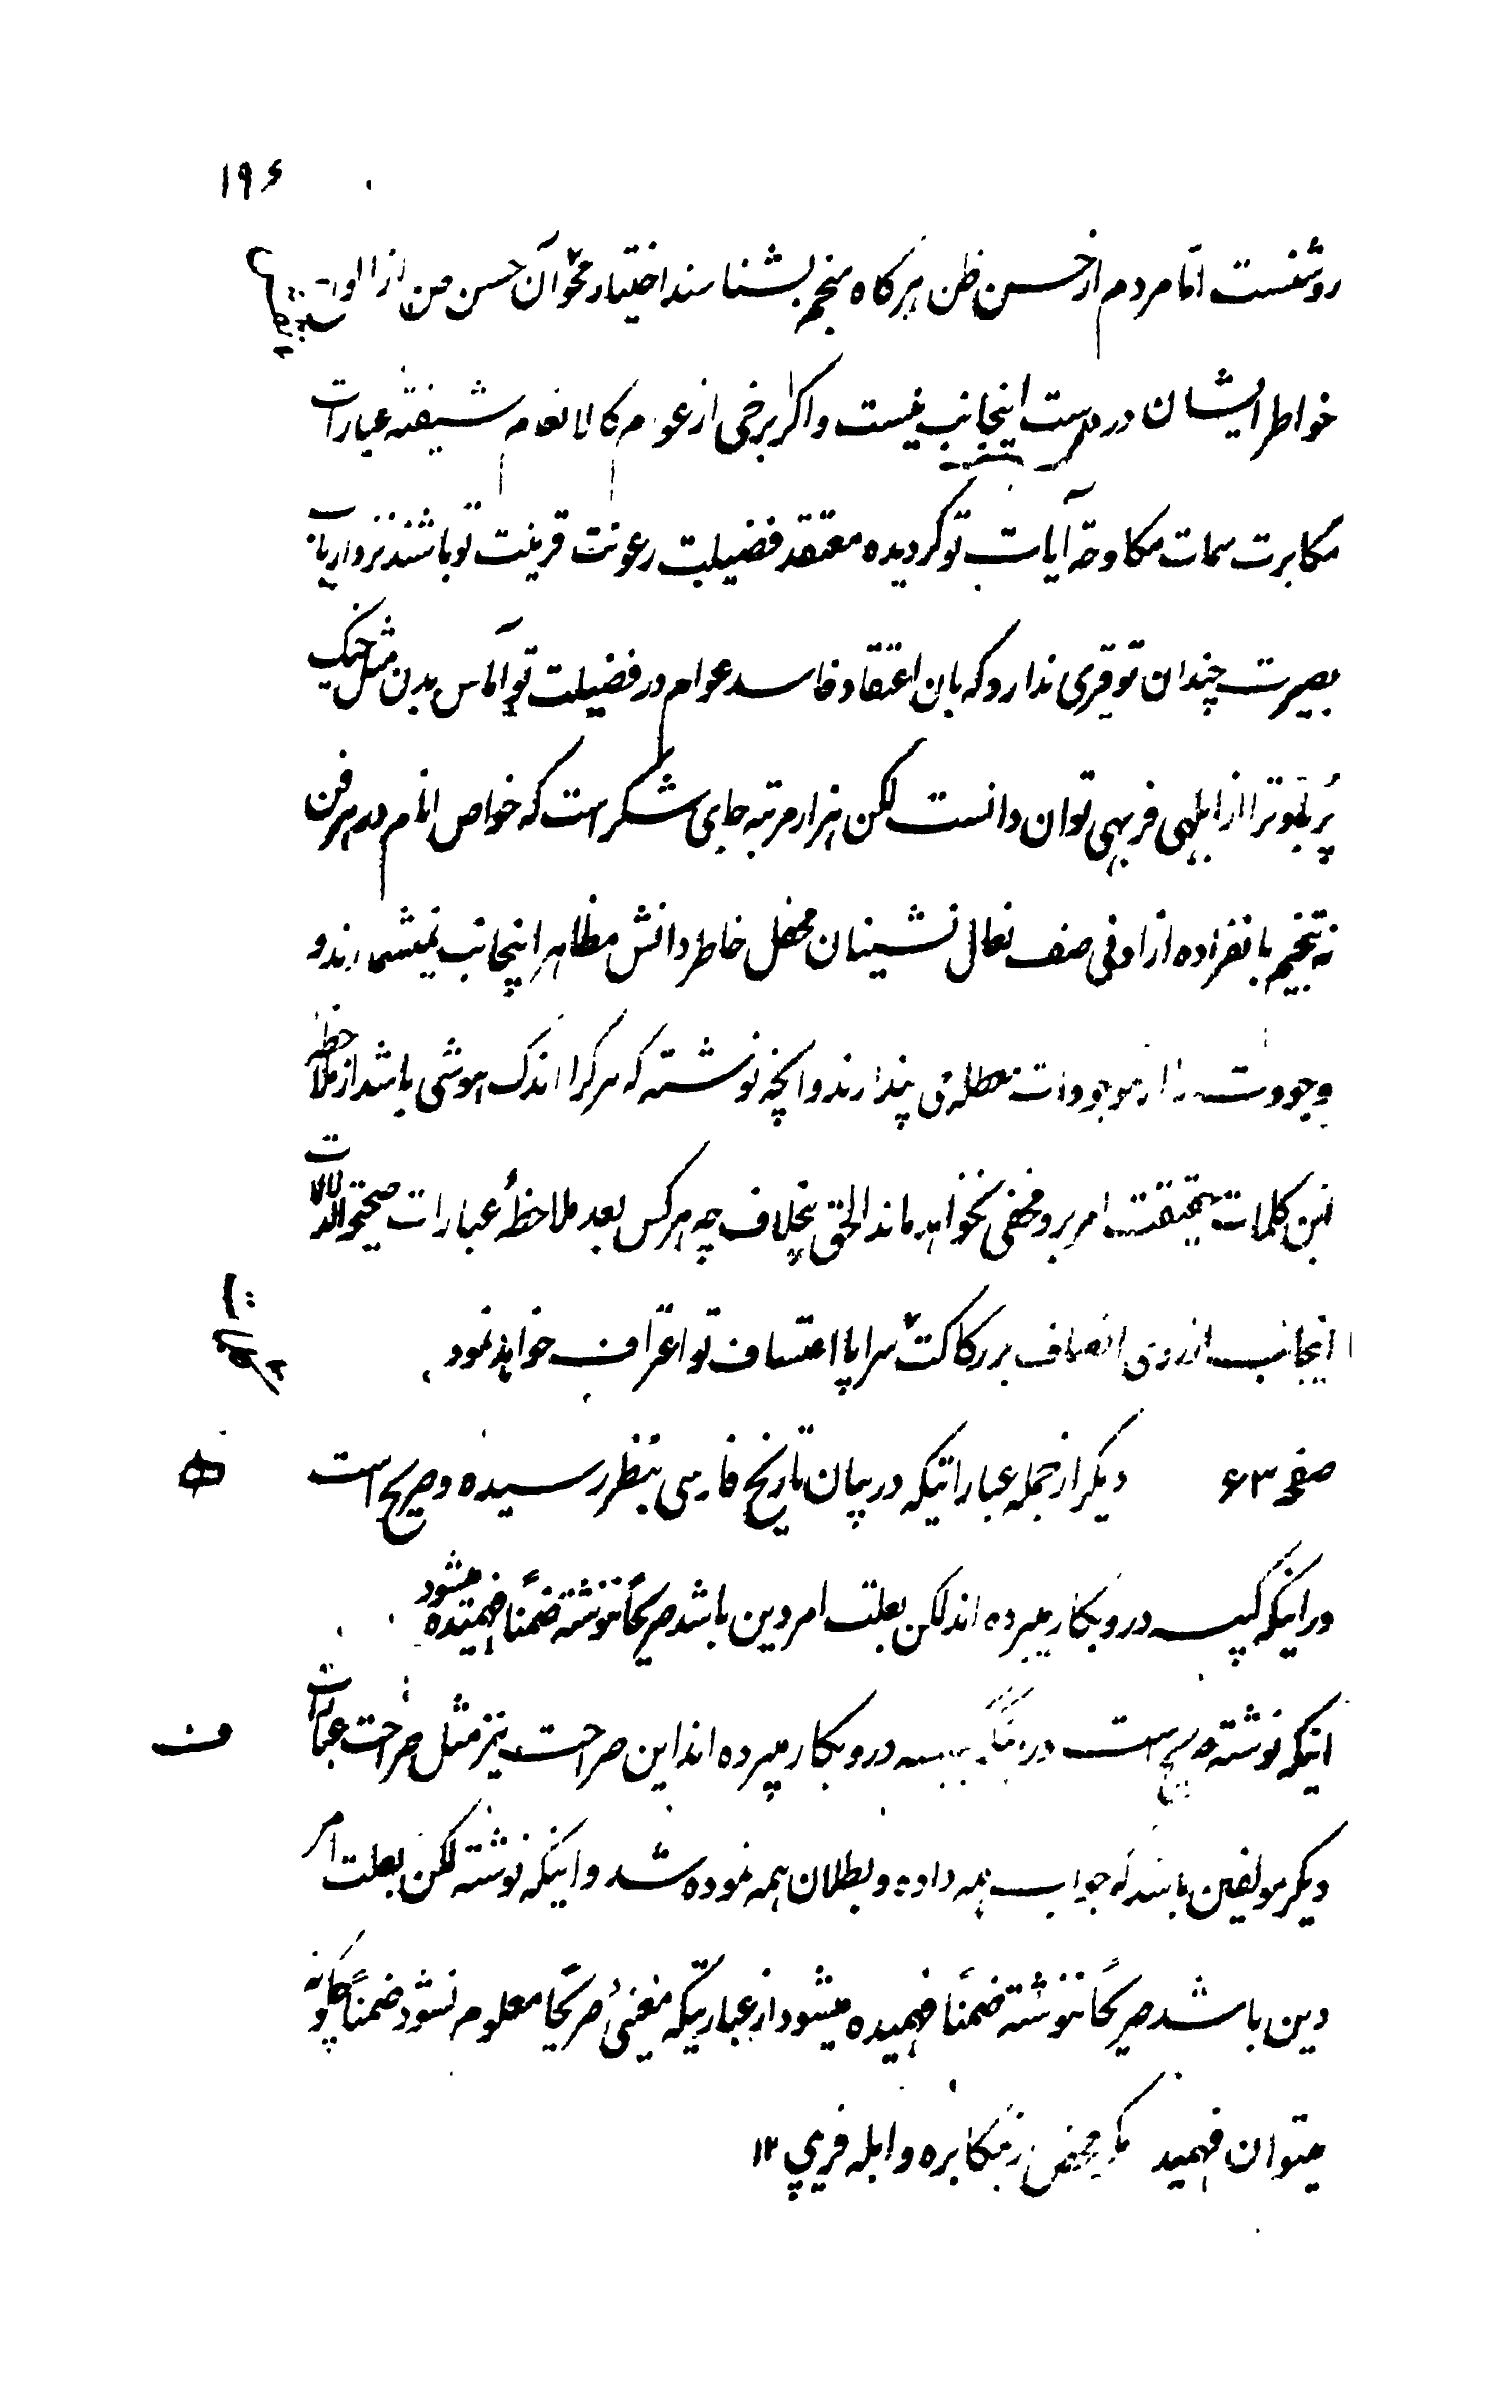 ۱۹۶
روشنست اما مردم از حسن ظن هرکاه منجم بشناسند اختیار محو آن حسن ظن از الواح
خواطر ایشان در دست اینجانب نیست و اکر برخی از عوام کالانعام شیفته عبارات
مکابرت سمات مکاوحه آیات تو کردیده معتقد فضیلت رعونت قرینت تو باشند نزد ارباب
بصیرت چندان توقیری ندارد که بان اعتقاد فاسد عوام در فضیلت تو آماس بدن مثل خیک
پر بادترا از ابلهی فربهی توان دانست لکن هزار مرتبه جای شکر است که خواص انام در هر فن
نه تنجیم بانفراده از ادنی صف نعال نشینان محفل خاطر دانش مظاهر اینجانب نمیشمارند و
وجودت را از موجودات معطله می پندارند و آنچه نوشته که هرکرا اندک هوشی باشد از ملاحظه
این کلمات حقیقت امر برو مخفی نخواهد ماند الحق بخلاف چه هرکس بعد ملاحظهٔ عبارات صحیحة الدلالات
اینجانب از روی انصاف بر رکاکت سراپا اعتساف تو اعتراف خواهد نمود
صفحه ۶۳ دیکر از جمله عباراتیکه در بیان تاریخ فارسی بنظر رسیده و صریح است
در اینکه کبیسه درو بکار میبرده اند لکن بعلت امر دین باشد صریحًا ننوشته ضمنًا فهمیده میشود
اینکه نوشته صریح است در اینکه کبیسه درو بکار میبرده اند این صراحت نیز مثل صراحت عبارات
دیکر مولفین باشد که جواب همه داده و بطلان همه نموده شد و اینکه نوشته لکن بعلت امر
دین باشد صریحًا ننوشته ضمنًا فهمیده میشود از عبارتیکه معنیٔ صریحًا معلوم نشود ضمنًا چکونه
میتوان فهمید مکر محض از مکابره و ابله فریبی ۱۲